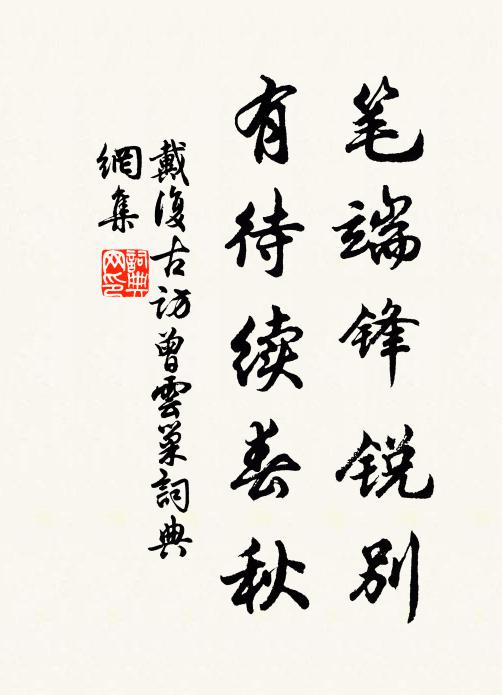 笔端锋锐别
有待续春秋
戴復古訪曾雲巢詞典
網集
詞典
网印